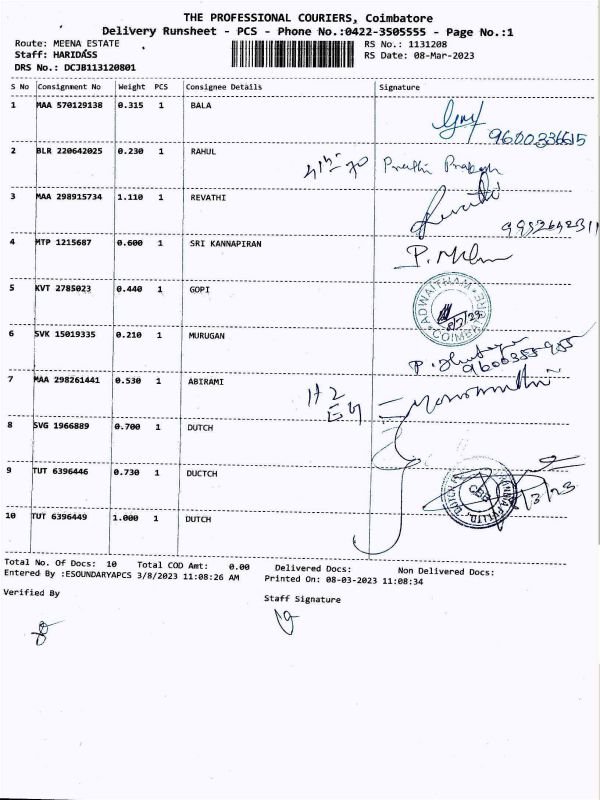 THE PROFESSIONAL COURIERS, Coimbatore
Delivery Runsheet - PCS - Phone No.:0422-3505555 - Page No.:1
Route: MEENA ESTATE RS No.: 1131208
Staff: HARIDASS RS Date: 08-Mar-2023
DRS No.: DCJB113120801
S No Consignment No Weight PCS Consignee Details Signature
1 MAA 570129138 0.315 1 BALA
9600336615
2 BLR 220642025 0.230 1 RAHUL
3 MAA 298915734 1.110 1 REVATHI Revathi
4 MTP 1215687 0.600 1 SRI KANNAPIRAN
5 KVT 2785023 0.440 1 GOPI ADWAITHAM
6 SVK 15019335 0.210 1 MURUGAN
7 MAA 298261441 0.530 1 ABIRAMI
8 SVG 1966889 0.700 1 DUTCH
9 TUT 6396446 0.730 1 DUCTCH
10 TUT 6396449 1.000 1 DUTCH
Total No. Of Docs: 10 Total COD Amt: 0.00 Delivered Docs: Non Delivered Docs:
Entered By :ESOUNDARYAPCS 3/8/2023 11:08:26 AM Printed On: 08-03-2023 11:08:34
Verified By Staff Signature